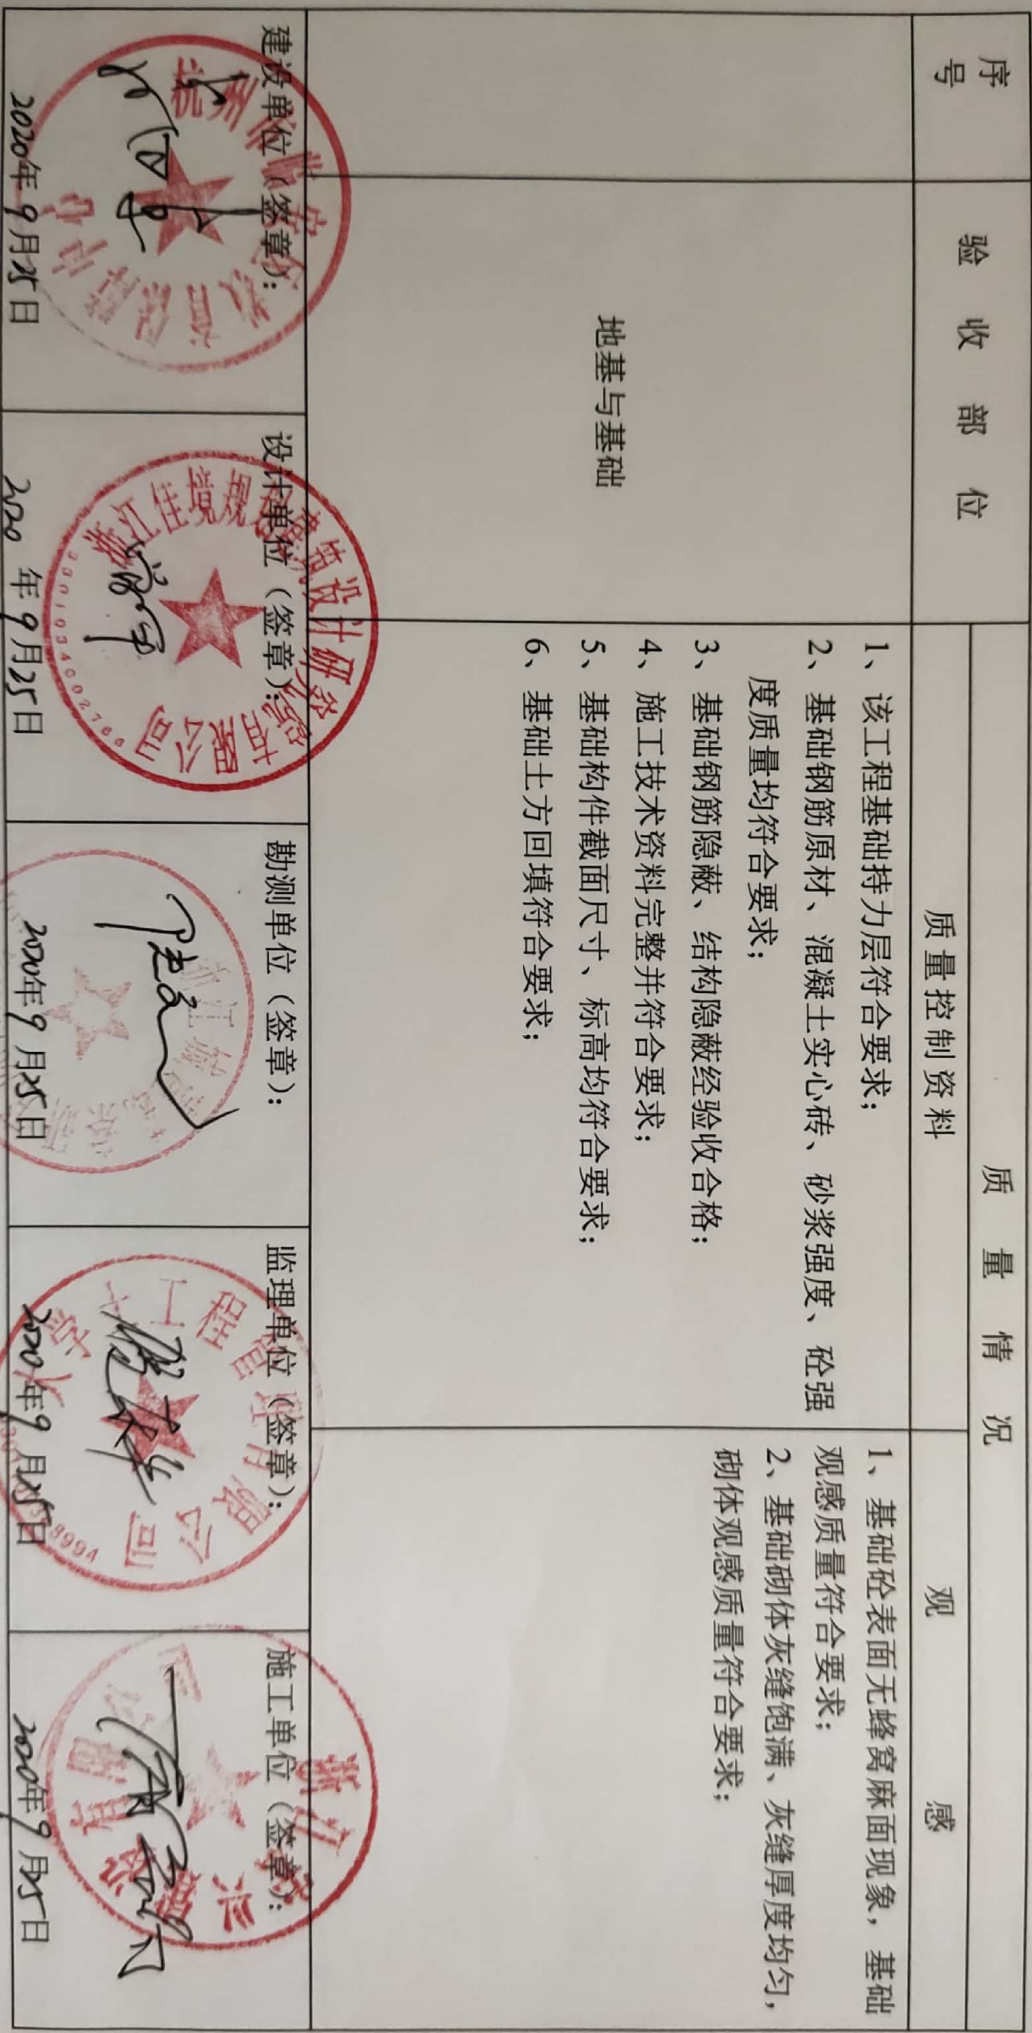 序号
验收部位
质量情况
质量控制资料
观感
地基与基础
1、该工程基础持力层符合要求；
2、基础钢筋原材、混凝土实心砖、砂浆强度、砼强
度质量均符合要求；
3、基础钢筋隐蔽、结构隐蔽经验收合格；
4、施工技术资料完整并符合要求；
5、基础构件截面尺寸、标高均符合要求；
6、基础土方回填符合要求；
1、基础砼表面无蜂窝麻面现象，基础
观感质量符合要求；
2、基础砌体灰缝饱满、灰缝厚度均匀，
砌体观感质量符合要求；
建设单位（签章）：
2020年9月25日
设计单位（签章）：
浙江佳境规划建筑设计研究院有限公司
2020年9月25日
勘测单位（签章）：
2020年9月25日
监理单位（签章）：
工程管理有限公司
2020年9月25日
施工单位（签章）：
2020年9月25日